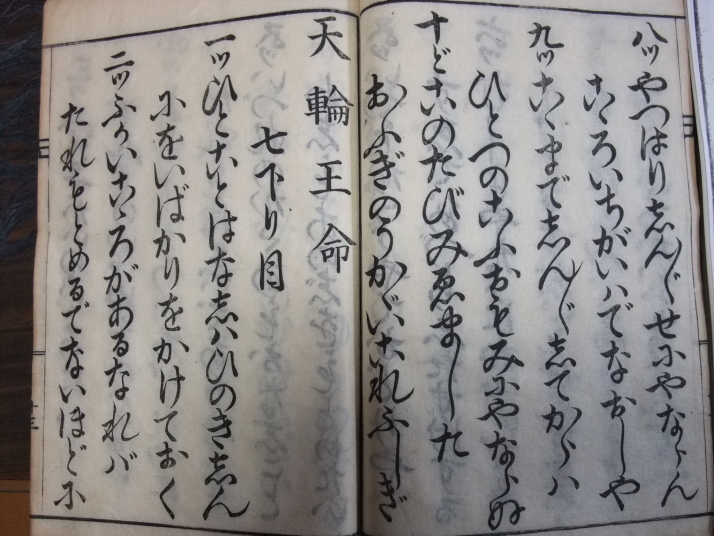 八ッやつはりしん〴〵せにやならん
こゝろいちがいハでなおしや
九ッこゝまでしん〴〵してからハ
ひとつのこふおもみにやならぬ
十どこのたびみゑました
おふぎのうかゞいこれふしぎ
天輪王命
七下り目
一ッひとことはなしハひのきしん
にをいばかりをかけておく
二ッふかいこゝろがあるなれバ
たれもとめるでないほどに
十三